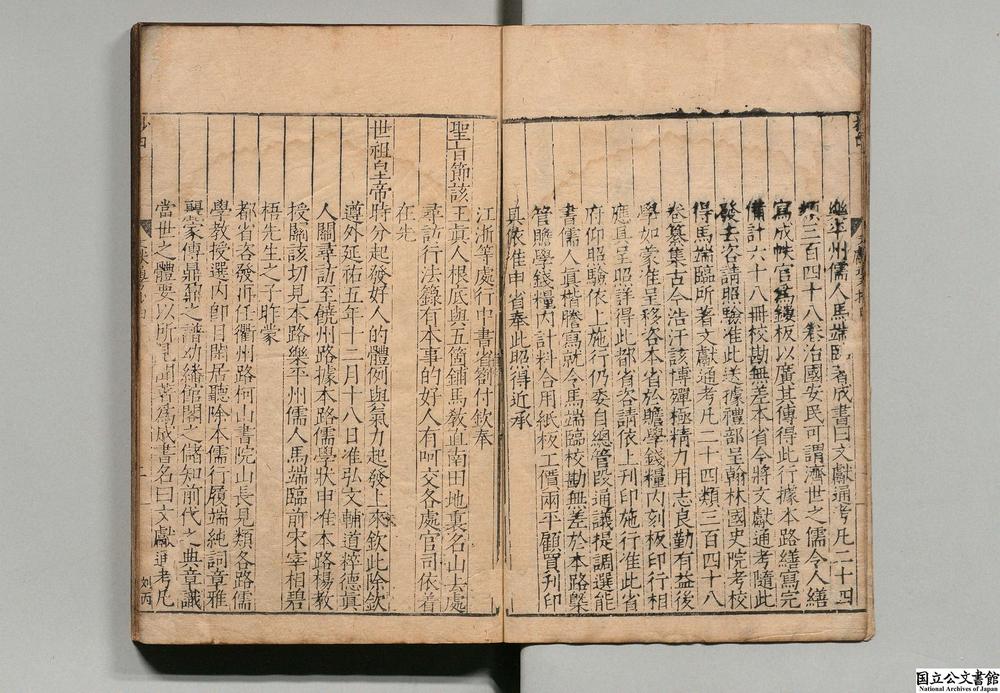 樂平州儒人馬端臨著成書曰文獻通考凡二十四
類三百四十八卷治國安民可謂濟世之儒令人繕
寫成帙官為鏤板以廣其傳得此行據本路繕寫完
備計六十八冊校勘無差本省今將文獻通考隨此
發去咨請照驗准此送據禮部呈翰林國史院考校
得馬端臨所著文獻通考凡二十四類三百四十八
卷纂集古今浩汗該博殫極精力用志良勤有益後
學如蒙准呈移咨本省於贍學錢糧內刻板印行相
應具呈照詳得此都省咨請依上刊印施行准此省
府仰照驗依上施行仍委自總管段通議提調選能
書儒人真楷謄寫就令馬端臨校勘無差於本路槩
管贍學錢糧內計料合用紙板工價兩平顧買刊印
具依准申省奉此照得近承
江浙等處行中書省劄付欽奉
聖旨節該王真人根底與五箇鋪馬教直南田地裏名山去處
尋訪行法籙有本事的好人有呵交各處官司依着
在先
世祖皇帝時分起發好人的體例與氣力起發上來欽此除欽
遵外延祐五年十二月十八日准弘文輔道粹德真
人關尋訪至饒州路據本路儒學狀申准本路楊教
授關該切見本路樂平州儒人馬端臨前宋宰相碧
梧先生之子昨蒙
都省咨發再任衢州路柯山書院山長見類各路儒
學教授選內即目閑居聽除本儒行履端純詞章雅
麗蒙傳鼎鼐之譜幼繙館閣之儲知前代之典章識
當世之體要以所見聞著為成書名曰文獻通考凡
刘丙